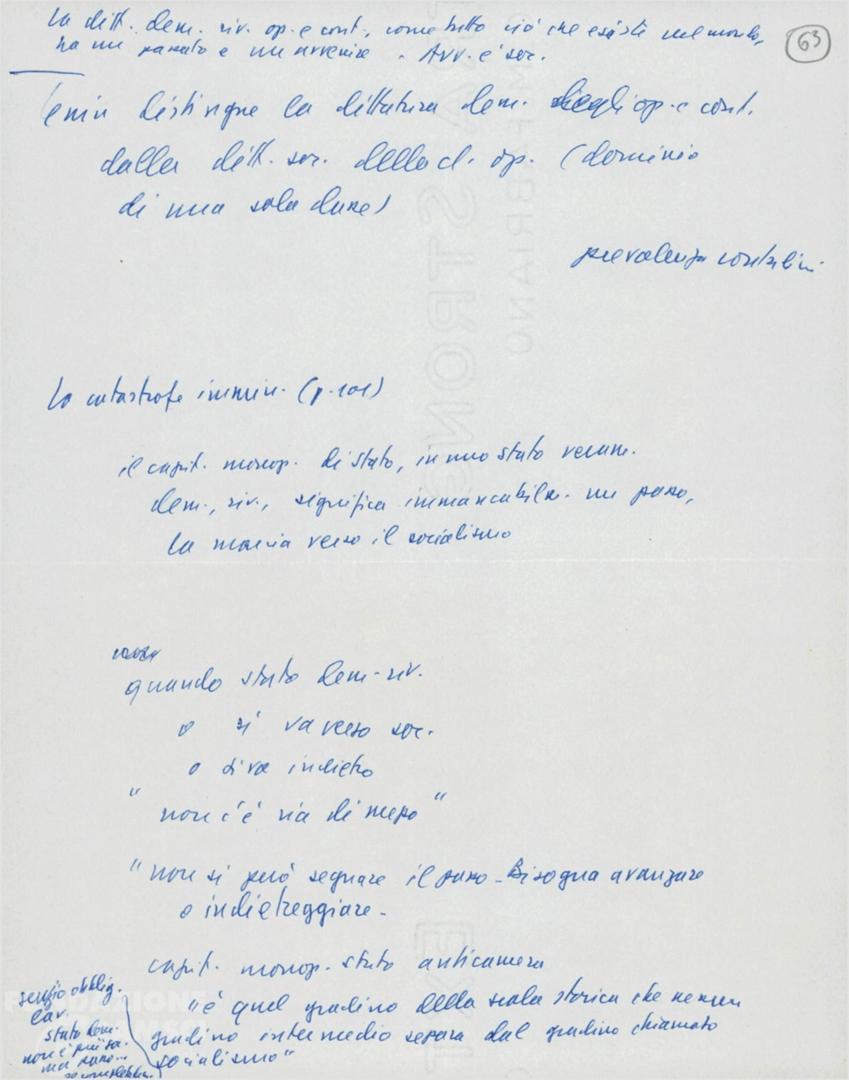 La ditt. dem. riv. op. e cont., come tutto ciò che esiste nel mondo,
ha un passato e un avvenire. Avv. è soc.
63
Lenin distingue la dittatura dem. degli op. e cont.
dalla ditt. soc. della cl. op. (dominio
di una sola classe)
prevalenza contadini
La catastrofe immin. (p. 101)
il capit. monop. di stato, in uno stato veram.
dem., riv., significa immancabilm. un passo,
la marcia verso il socialismo
quando stato dem-riv.
o si va verso soc.
o si va indietro
"non c'è via di mezzo"
"non si può segnare il passo - Bisogna avanzare
o indietreggiare -
capit. monop. stato anticamera
"è quel gradino della scala storica che nessun
gradino intermedio separa dal gradino chiamato
socialismo"
servizio obblig.
lav.
stato dem.
non è più
ma passo...
FONDAZIONE